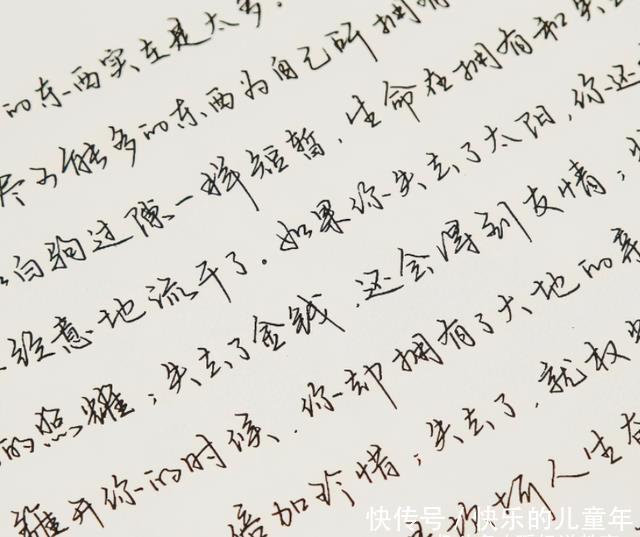 的东西实在是太多.
尽可能多的东西为自己所拥有
白驹过隙一样短暂,生命在拥有和失去
经意地流干了.如果你失去了太阳,你还
的照耀;失去了金钱,还会得到友情;当
离开你的时候,你却拥有了大地的亲
倍加珍惜;失去了,就权当
人生在
快传号/快乐的儿童年